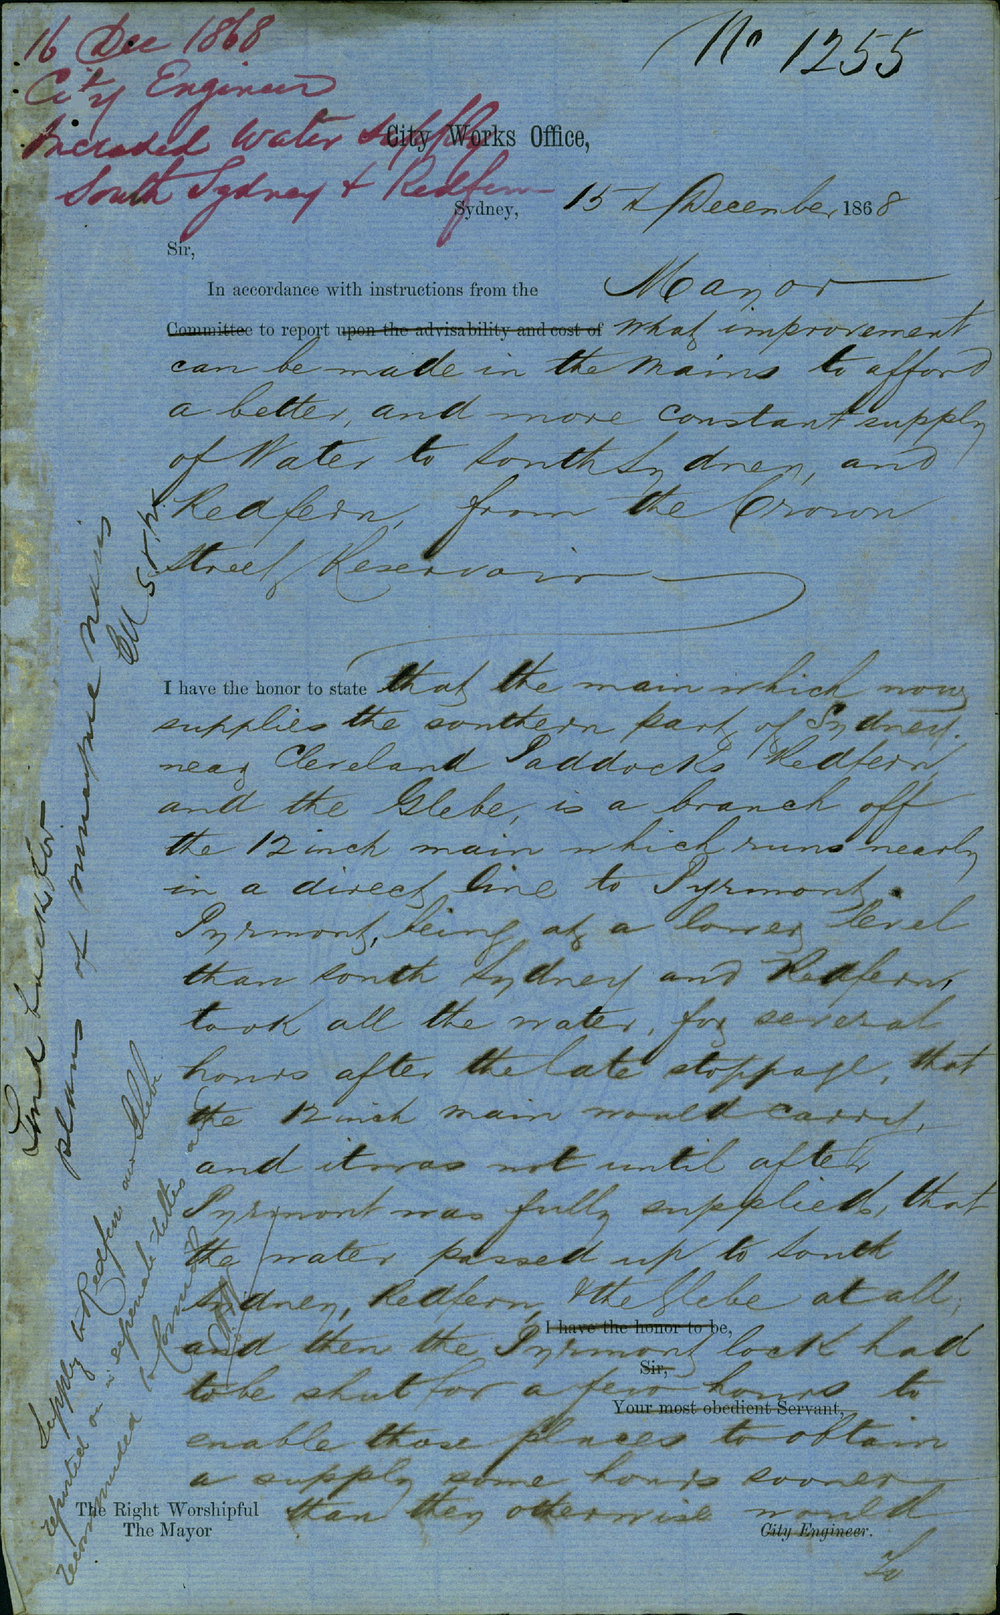 16 Dec 1868
City Engineer
Increased Water Supply
South Sydney & Redfern
No 1255
City Works Office,
Sydney, 15th December 1868
Sir,
In accordance with instructions from the Mayor
Committee to report upon the advisability and cost of what improvement
can be made in the Mains to afford
a better, and more constant supply
of Water to South Sydney, and
Redfern, from the Crown
Street Reservoir
I have the honor to state that the main which now
supplies the southern part of Sydney.
near Cleveland Paddocks Redfern,
and the Glebe, is a branch off
the 12 inch main which runs nearly
in a direct line to Pyrmont.
Pyrmont, being at a lower level
than South Sydney and Redfern,
took all the water, for several
hours after the late stoppage, that
the 12 inch main would carry,
and it was not until after
Pyrmont was fully supplied, that
the water passed up to South
Sydney, Redfern, & the Glebe at all,
I have the honor to be,
and then the Pyrmont lock had
Sir,
to be shut for a few hours to
Your most obedient Servant,
enable those places to obtain
a supply some hours sooner
The Right Worshipful
than they otherwise would
The Mayor
City Engineer.
To
plans of
mains
Supply to Redfern and Glebe
reported on in separate letter
recommended